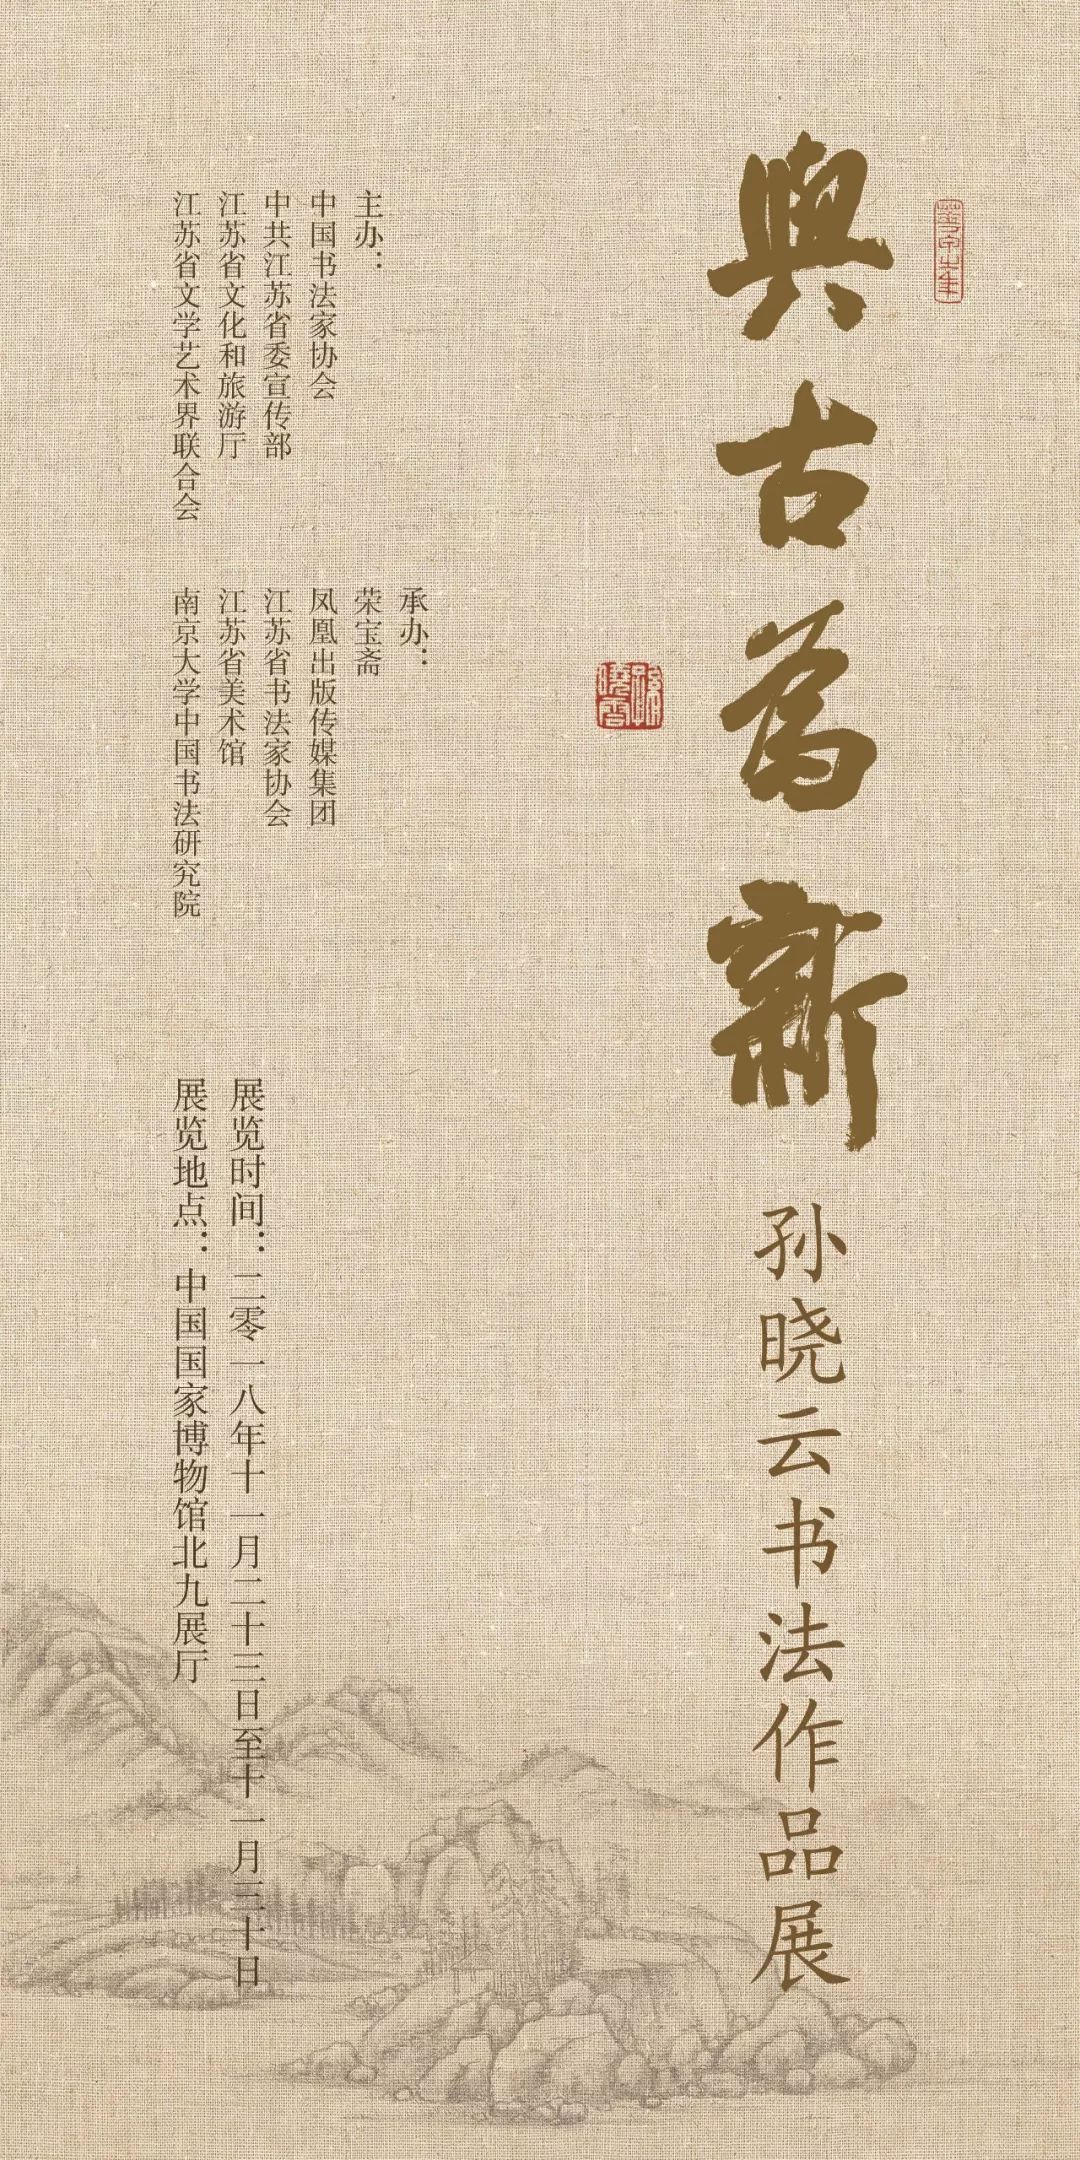 與古為新
孙晓云书法作品展
主办：
中国书法家协会
中共江苏省委宣传部
江苏省文化和旅游厅
江苏省文学艺术界联合会
承办：
荣宝斋
凤凰出版传媒集团
江苏省书法家协会
江苏省美术馆
南京大学中国书法研究院
展览时间：二零一八年十一月二十三日至十一月三十日
展览地点：中国国家博物馆北九展厅